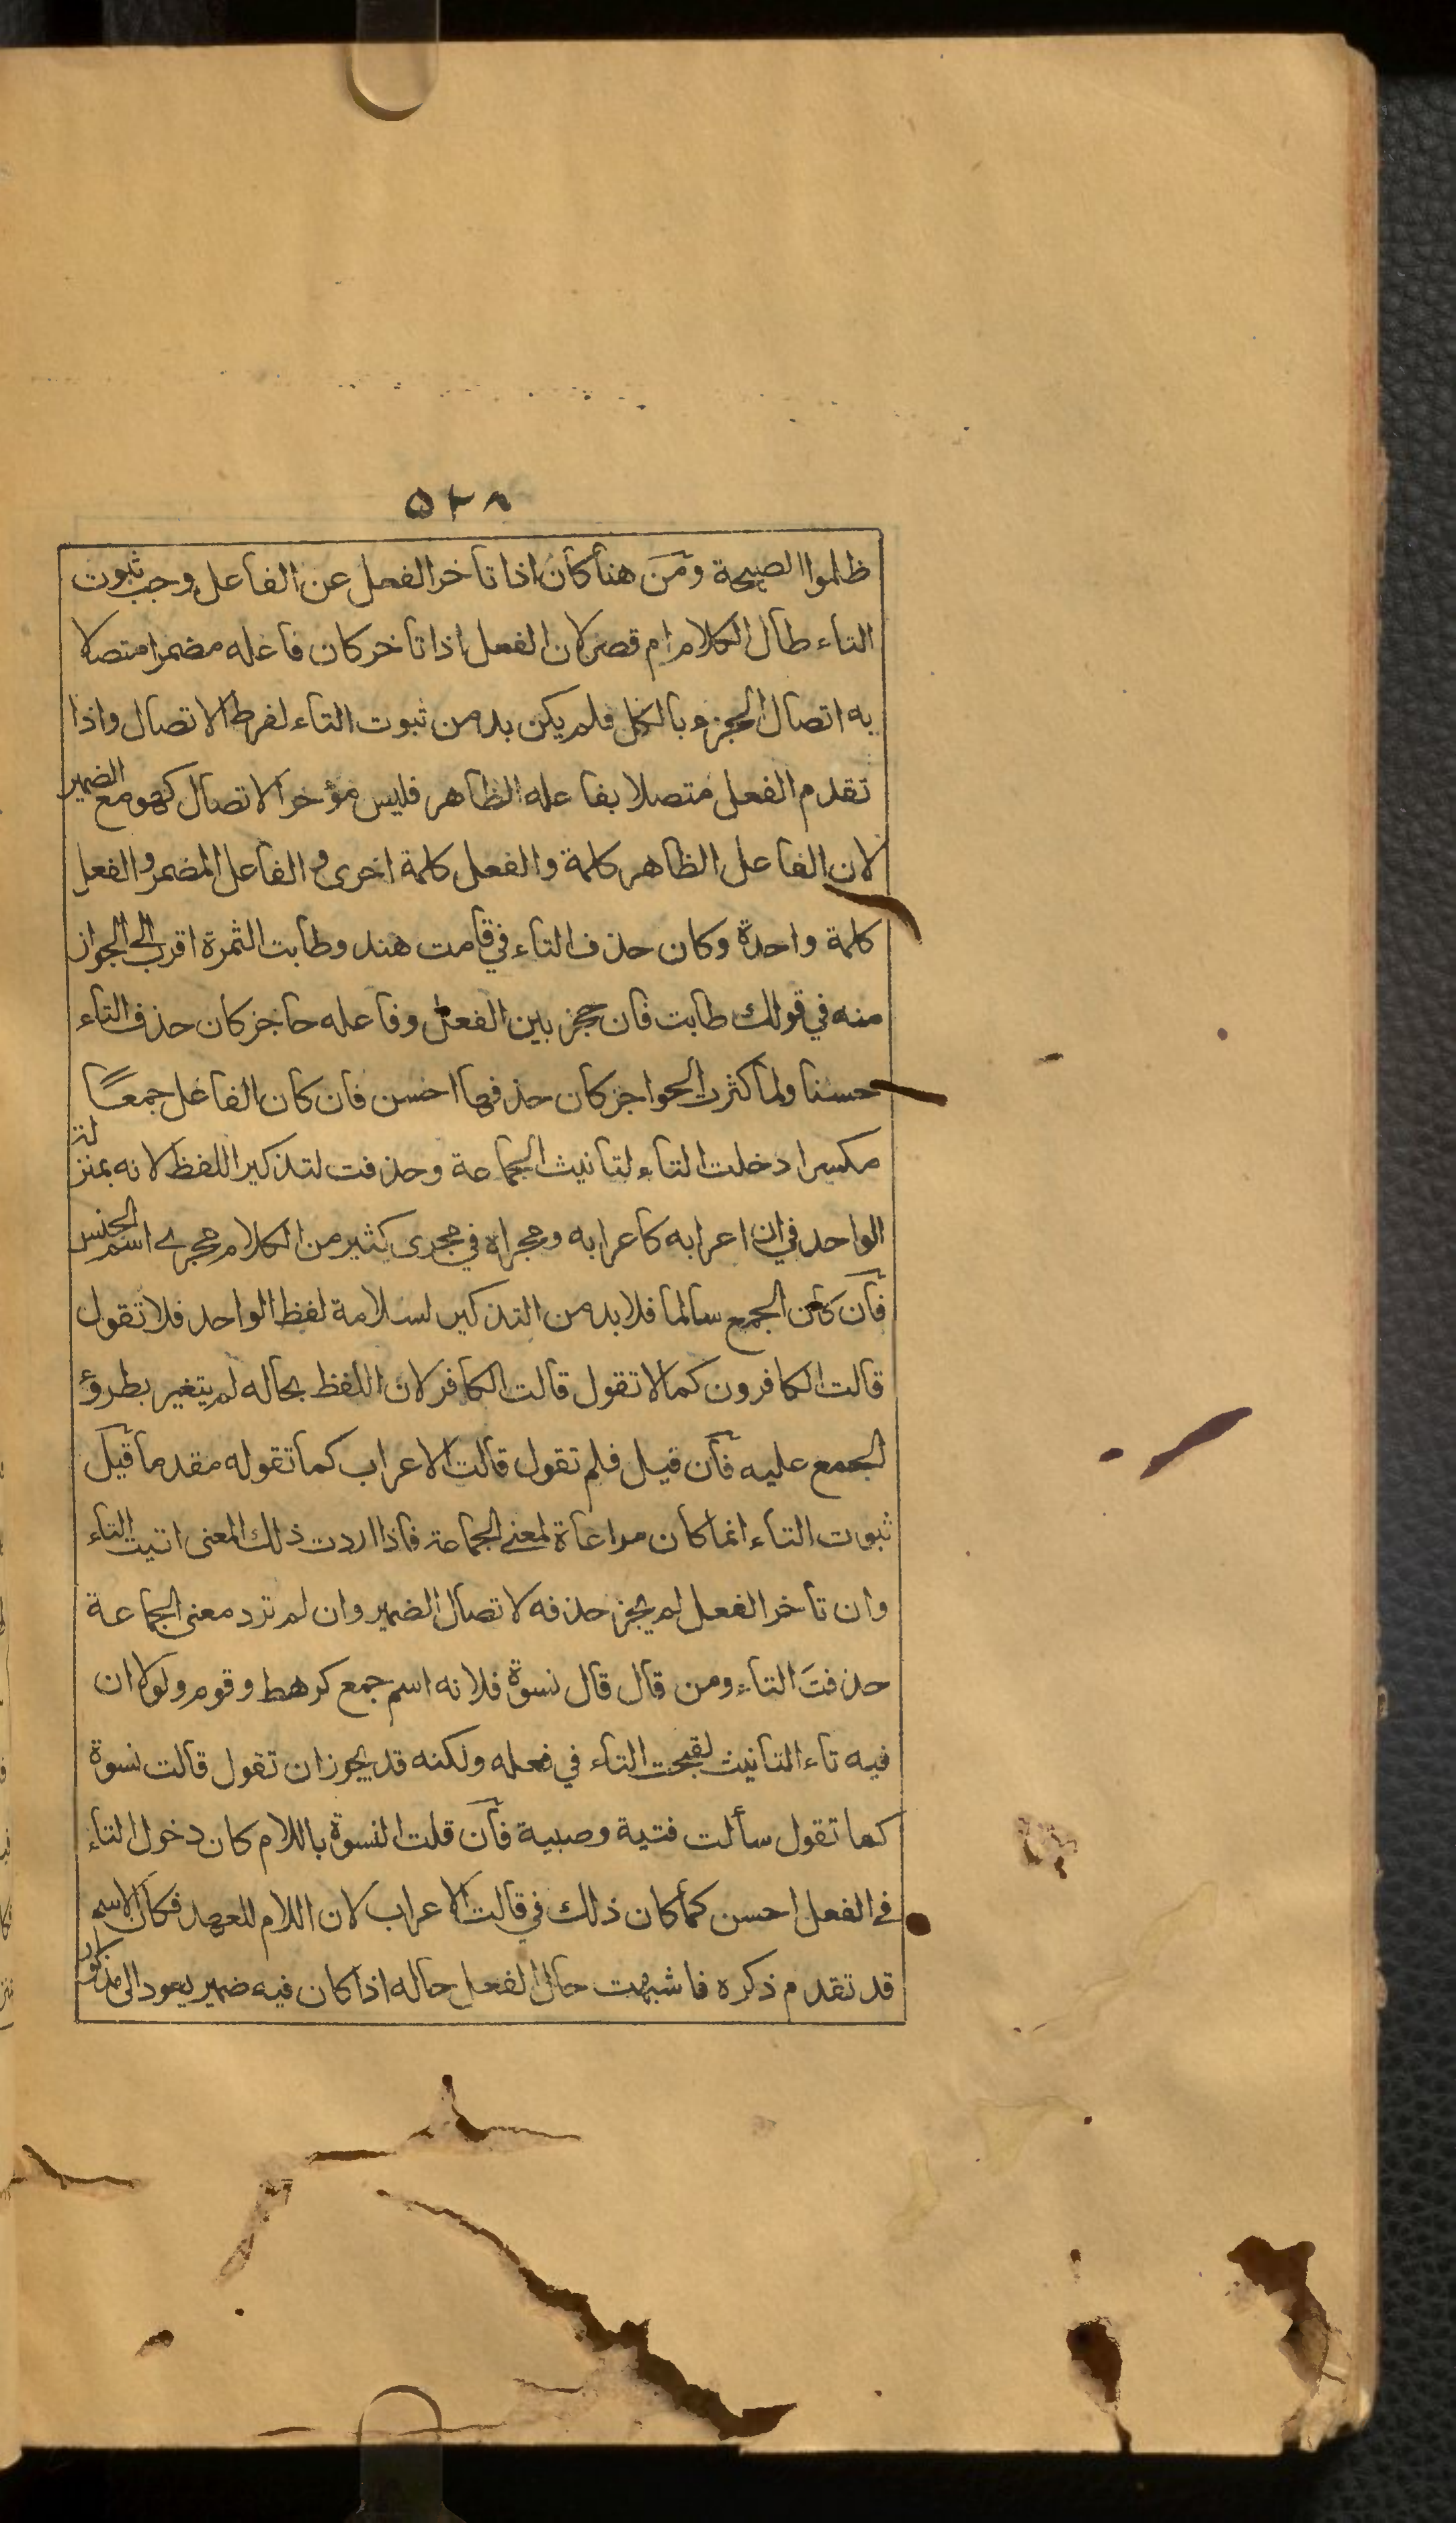 ٥٢٨
ظلموا الصيحة ومن هنا كان اذا تأخر الفعل عن الفاعل وجب ثبوت
التاء طال الكلام ام قصر لان الفعل اذا تأخر كان فاعله مضمرا متصلا
به اتصال الجزء بالكل فلم يكن بد من ثبوت التاء لفرط الاتصال واذا
تقدم الفعل متصلا بفاعله الظاهر فليس مؤخر الاتصال كهو مع الضمير
لان الفاعل الظاهر كلمة والفعل كلمة اخرى و الفاعل المضمر والفعل
كلمة واحدة وكان حذف التاء في قامت هند وطابت الثمرة اقرب الى الجواز
منه في قولك طابت فان حجز بين الفعل وفاعله حاجز كان حذف التاء
حسنا ولما كثرت الحواجز كان حذفها احسن فان كان الفاعل جمعًا
مكسرا دخلت التاء لتانيث الجماعة وحذفت لتذكير اللفظ لانه بمنزلة
الواحد في ان اعرابه كاعرابه ومجراه في مجرى كثير من الكلام مجرے اسم الجنس
فان كان الجمع سالما فلا بد من التذكير لسلامة لفظ الواحد فلا تقول
قالت الكافرون كما لا تقول قالت الكافر لان اللفظ بحاله لم يتغير بطروٴ
الجمع عليه فان قيل فلم تقول قالت الاعراب كما تقوله مقدما قيل
ثبوت التاء انما كان مراعاة لمعنے الجماعة فاذا اردت ذلك المعنى اتيت التاء
وان تأخر الفعل لم يجز حذفه لاتصال الضمير وان لم ترد معنى الجماعة
حذفت التاء ومن قال قال نسوة فلانه اسم جمع كرهط وقوم ولولا ان
فيه تاء التانيث لقبحت التاء في فعله ولكنه قد يجوز ان تقول قالت نسوة
كما تقول سألت فتية وصبية فان قلت النسوة باللام كان دخول التاء
فے الفعل احسن كما كان ذلك في قالت الاعراب لان اللام للعهد فكان الاسم
قد تقدم ذكره فاشبهت حال الفعل حاله اذا كان فيه ضمير يعود الى مذكور